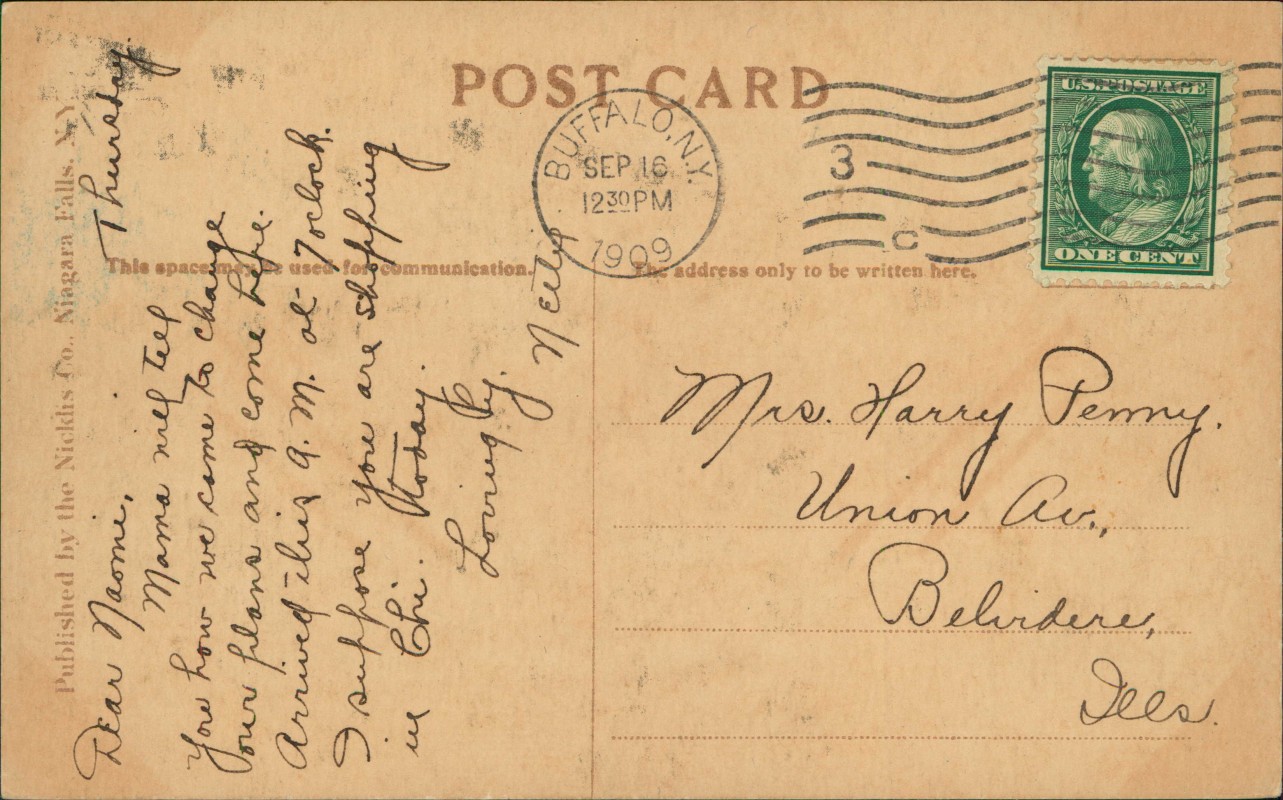 POST CARD
BUFFALO, N.Y.
SEP 16
12 30 PM
1909
3
C
U.S. POSTAGE
ONE CENT
This space may be used for communication.
The address only to be written here.
Published by the Nicklis Co., Niagara Falls, N.Y.
Thursday.
Dear Naomi,
Mama will tell
you how we came to change
our plans and come here.
Arrived this A. M. at 7 oclock.
I suppose you are shopping
in Chi. today.
Lovingly.
Nelly
Mrs. Harry Penny.
Union Av.,
Belvidere,
Ills.